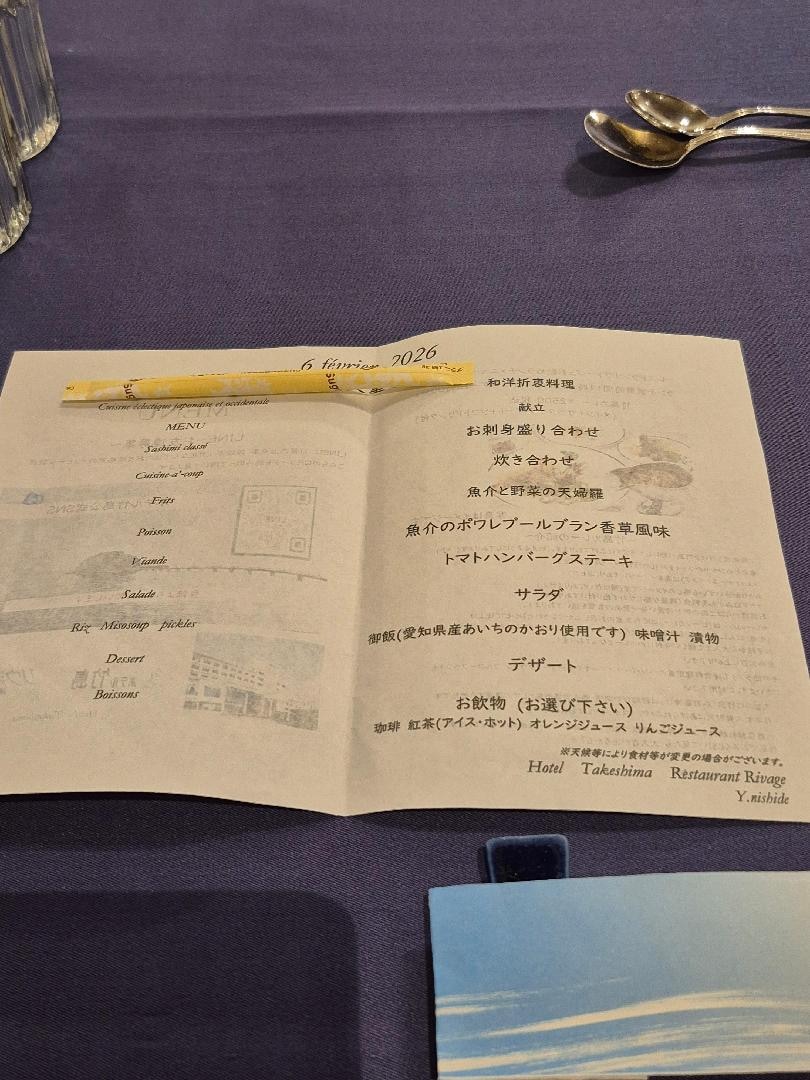 6 février 2026
Cuisine éclectique japonaise et occidentale
MENU
Sashimi classé
Cuisine-a'-coup
Frits
Poisson
Viande
Salade
Riz Misosoup pickles
Dessert
Boissons
和洋折衷料理
献立
お刺身盛り合わせ
炊き合わせ
魚介と野菜の天婦羅
魚介のポワレブールブラン香草風味
トマトハンバーグステーキ
サラダ
御飯(愛知県産あいちのかおり使用です) 味噌汁 漬物
デザート
お飲物 (お選び下さい)
珈琲 紅茶(アイス・ホット) オレンジジュース りんごジュース
※天候等により食材等が変更の場合がございます。
Hotel Takeshima Restaurant Rivage
Y.nishide